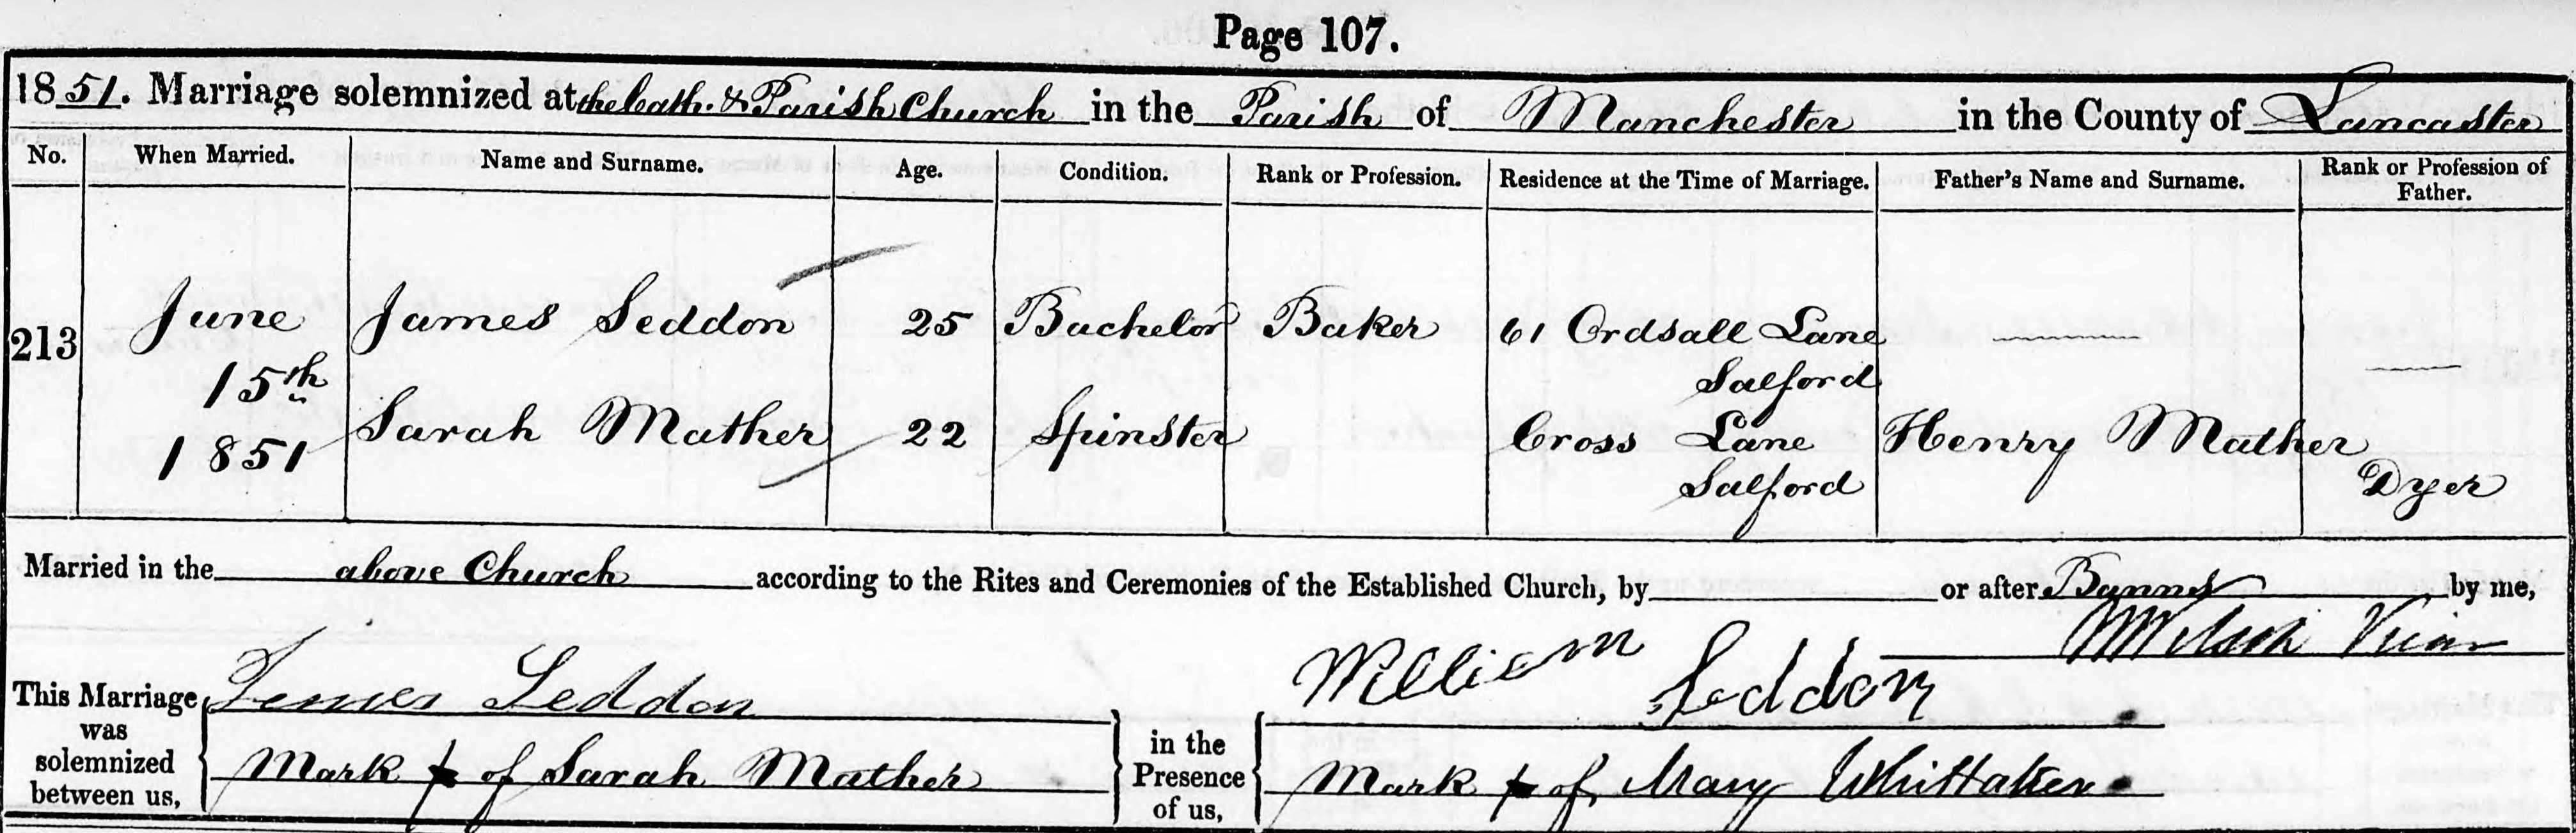 Page 107.
1851. Marriage solemnized at the Cath. & Parish Church in the Parish of Manchester in the County of Lancaster
No. When Married. Name and Surname. Age. Condition. Rank or Profession. Residence at the Time of Marriage. Father's Name and Surname. Rank or Profession of Father.
213 June 15th 1851 James Seddon 25 Bachelor Baker 61 Ordsall Lane Salford
Sarah Mather 22 Spinster Cross Lane Salford Henry Mather Dyer
Married in the above Church according to the Rites and Ceremonies of the Established Church, by or after Banns by me,
This Marriage was solemnized between us, James Seddon in the Presence of us, William Seddon
Mark of Sarah Mather Mark of Mary Whittaker